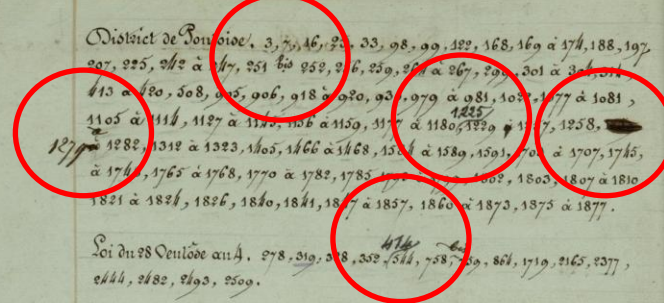 District de Pontoise. 3, 7, 16, 23, 33, 98, 99, 122, 168, 169 à 174, 188, 197
207, 225, 242 à 247, 251 bis 252, 259, à 267, 301 à
413 à 420, 508, 905, 906, 918 à 920, 979 à 981, 1077 à 1081,
1105 à 1114, 1127 à 1159, 1177 à 1180, 1225 1229 à 1258,
1279 à 1282, 1312 à 1323, 1405, 1466 à 1468, 1584 à 1589, 1591, à 1707, 1745,
à 1765 à 1768, 1770 à 1782, 1785, 1802, 1803, 1807 à 1810
1821 à 1824, 1826, 1840, 1841, à 1857, 1860 à 1873, 1875 à 1877.
Loi du 28 Ventôse an 4. 278, 319, 328, 352, 474 544, 758 bis, 864, 1719, 2165, 2377,
2444, 2482, 2493, 2509.